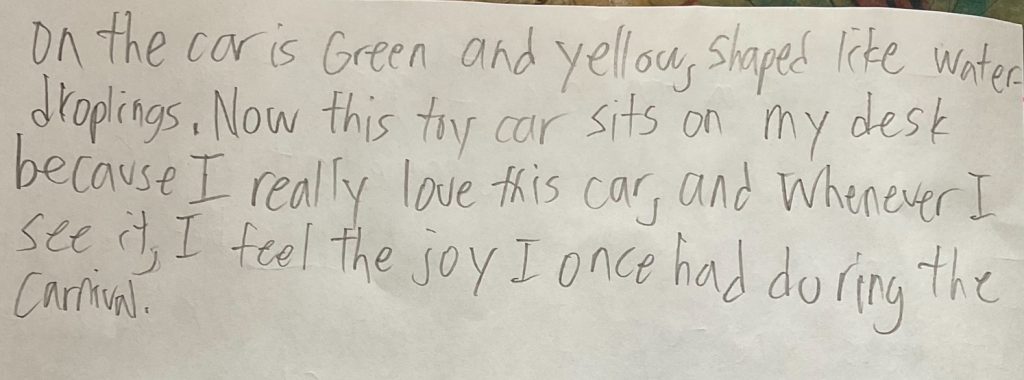 On the car is Green and yellow, shaped like water
droplings. Now this toy car sits on my desk
because I really love this car, and Whenever I
see it, I feel the joy I once had during the
Carnival.